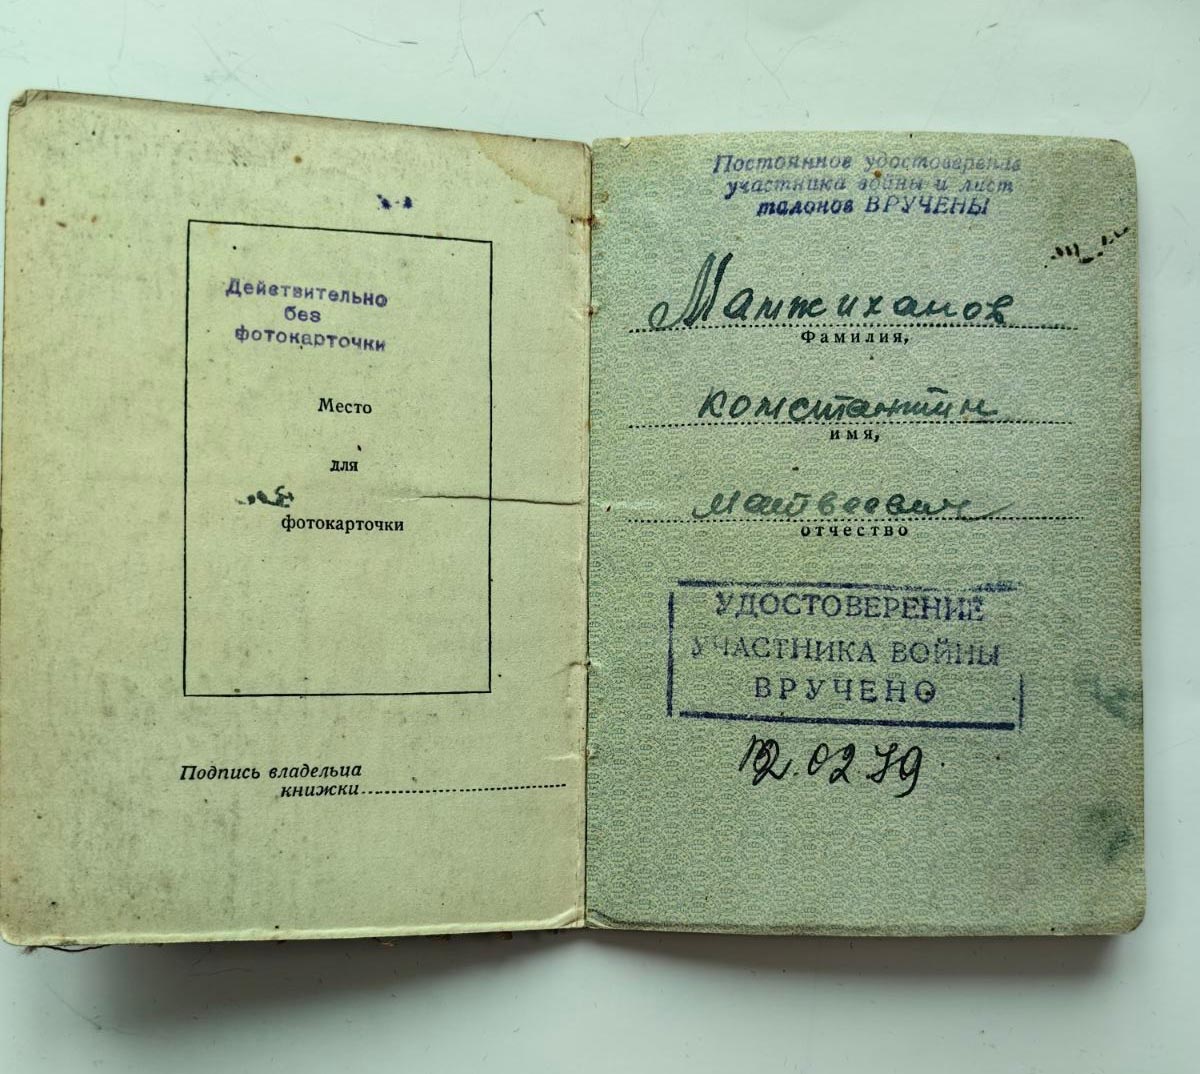 Действительно
без
фотокарточки
Место
для
фотокарточки
Подпись владельца
книжки
Постоянное удостоверение
участника войны и лист
талонов ВРУЧЕНЫ
Манжиханов
Фамилия,
Константин
имя,
Матвеевич
отчество
УДОСТОВЕРЕНИЕ
УЧАСТНИКА ВОЙНЫ
ВРУЧЕНО
12.02.79.